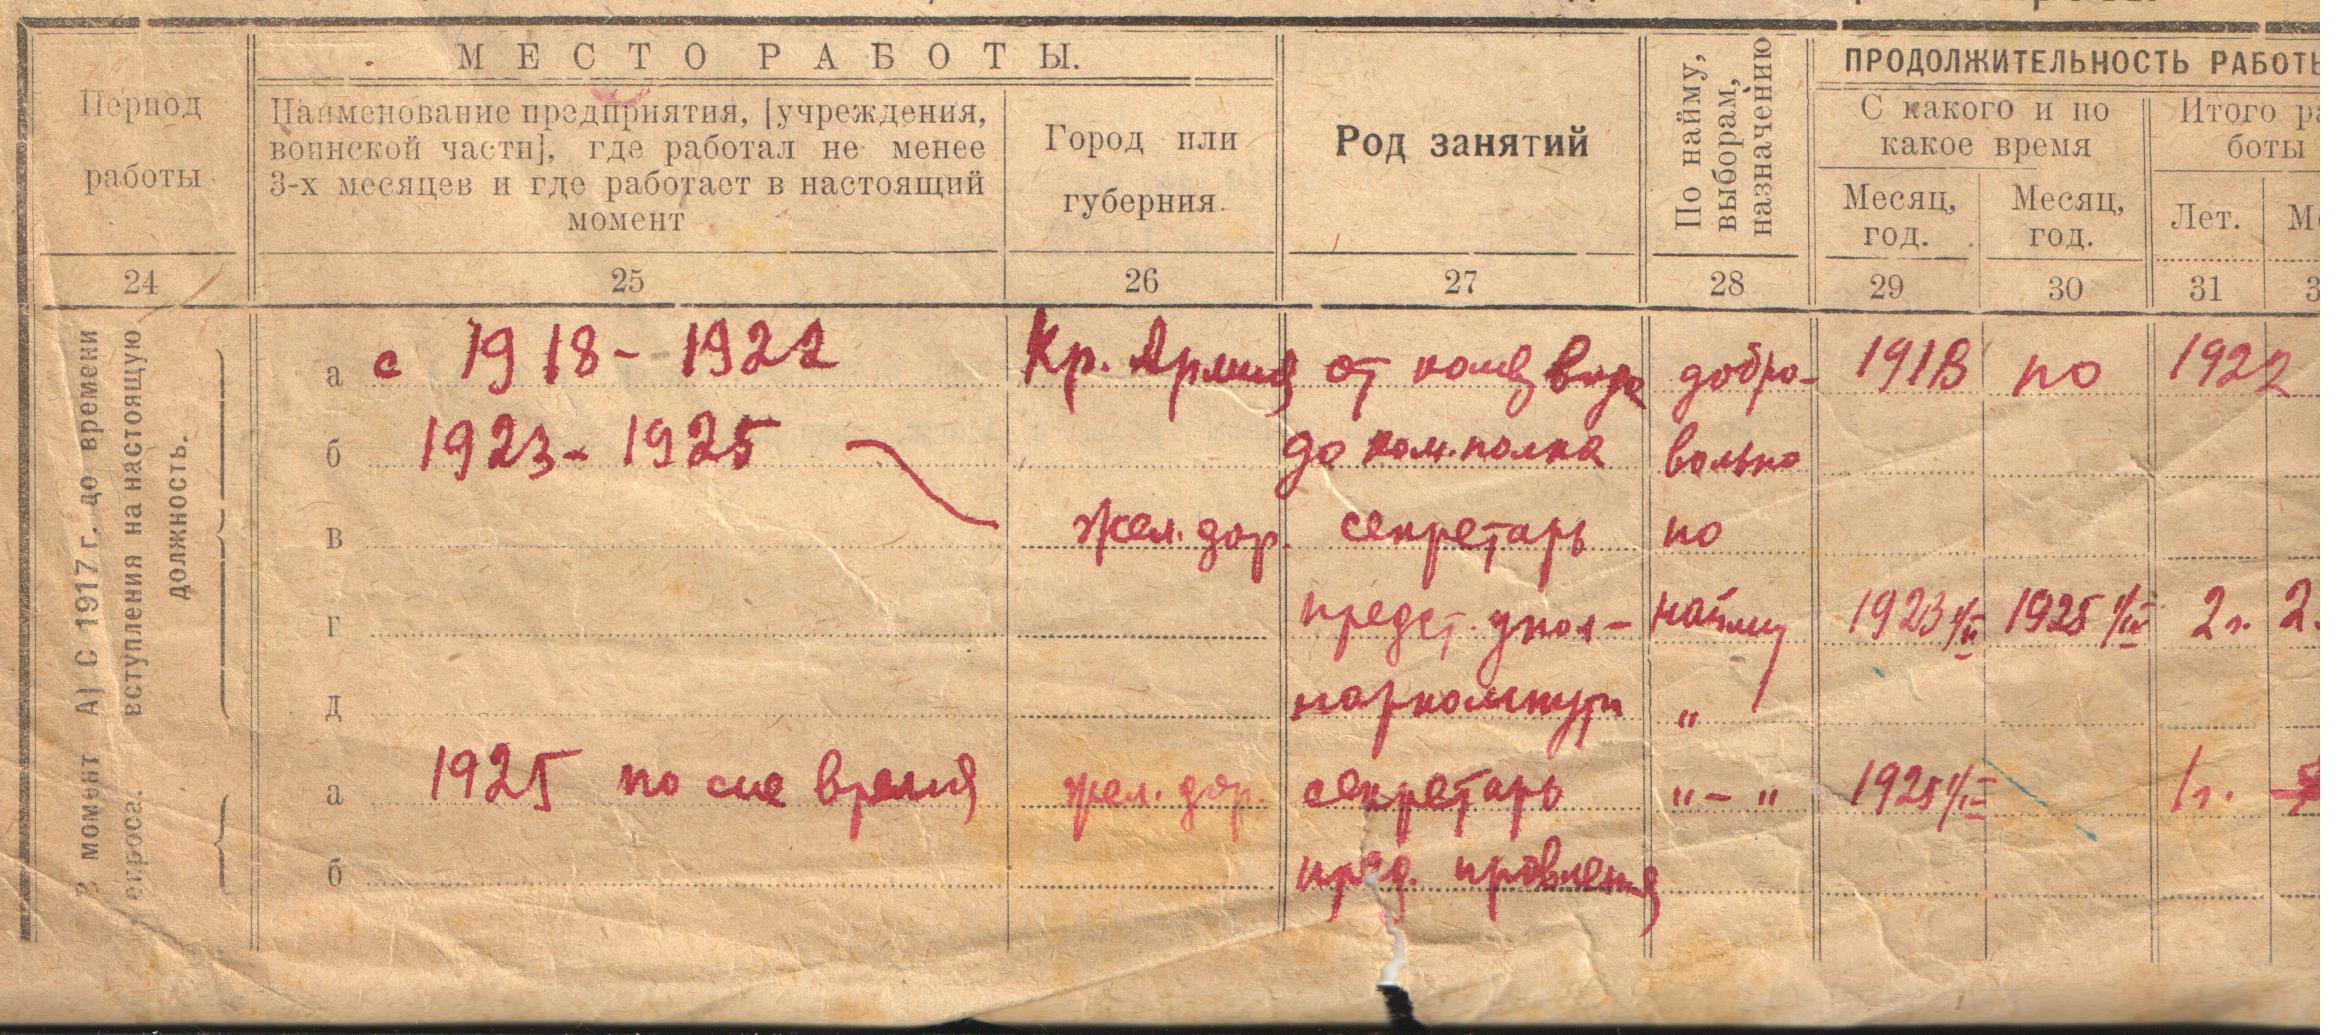 МЕСТО РАБОТЫ.
ПРОДОЛЖИТЕЛЬНОСТЬ РАБОТЫ
Период
работы
Наименование предприятия, [учреждения,
воинской части], где работал не менее
3-х месяцев и где работает в настоящий
момент
Город или
губерния.
Род занятий
По найму,
выборам,
назначению
С какого и по
какое время
Итого ра
боты
Месяц,
год.
Месяц,
год.
Лет.
М
24 25 26 27 28 29 30 31 3
А) С 1917 г. до времени
вступления на настоящую
должность.
а с 1918 - 1922 Кр. Армия от взвода добро- 1918 по 1922
б 1923 - 1925 до ком. полка вольно
в жел. дор. секретарь по
г предст. упол- найму 1923 1/II 1925 1/IV 2 г. 2.
д наркомпути "
В момент
опроса.
а 1925 по сие время жел. дор. секретарь " - " 1925 1/IV 1 г.
б пред. провления